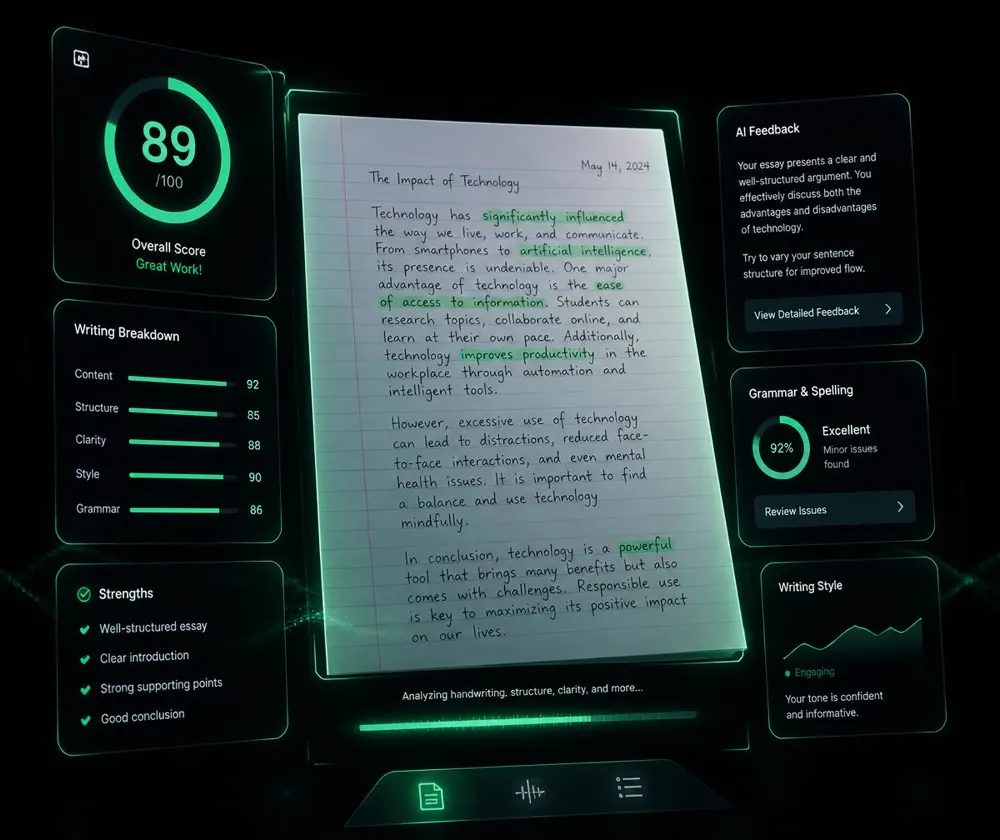 89
/100
Overall Score
Great Work!
Writing Breakdown
Content 92
Structure 85
Clarity 88
Style 90
Grammar 86
Strengths
Well-structured essay
Clear introduction
Strong supporting points
Good conclusion
May 14, 2024
The Impact of Technology
Technology has significantly influenced
the way we live, work, and communicate.
From smartphones to artificial intelligence,
its presence is undeniable. One major
advantage of technology is the ease
of access to information. Students can
research topics, collaborate online, and
learn at their own pace. Additionally,
technology improves productivity in the
workplace through automation and
intelligent tools.
However, excessive use of technology
can lead to distractions, reduced face-
to-face interactions, and even mental
health issues. It is important to find
a balance and use technology
mindfully.
In conclusion, technology is a powerful
tool that brings many benefits but also
comes with challenges. Responsible use
is key to maximizing its positive impact
on our lives.
Analyzing handwriting, structure, clarity, and more...
AI Feedback
Your essay presents a clear and
well-structured argument. You
effectively discuss both the
advantages and disadvantages
of technology.
Try to vary your sentence
structure for improved flow.
View Detailed Feedback
Grammar & Spelling
92%
Excellent
Minor issues
found
Review Issues
Writing Style
Engaging
Your tone is confident
and informative.